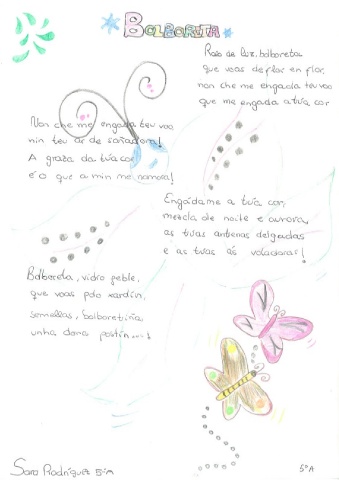 BOLBORETA
Raio de luz, bolboreta
que voas de flor en flor,
non che me engada teu voo
que me engada a túa cor
Non che me engada teu voo
nin teu ar de soñadora!
A graza da túa cor
é o que a min me namora!
Engádame a túa cor,
mezcla de noite e aurora,
as túas antenas delgadas
e as túas ás voadoras!
Bolboreta, vidro feble,
que voas polo xardín,
semellas, bolboretiña
unha dona postín...!
Sara Rodríguez 5ºA
5ºA